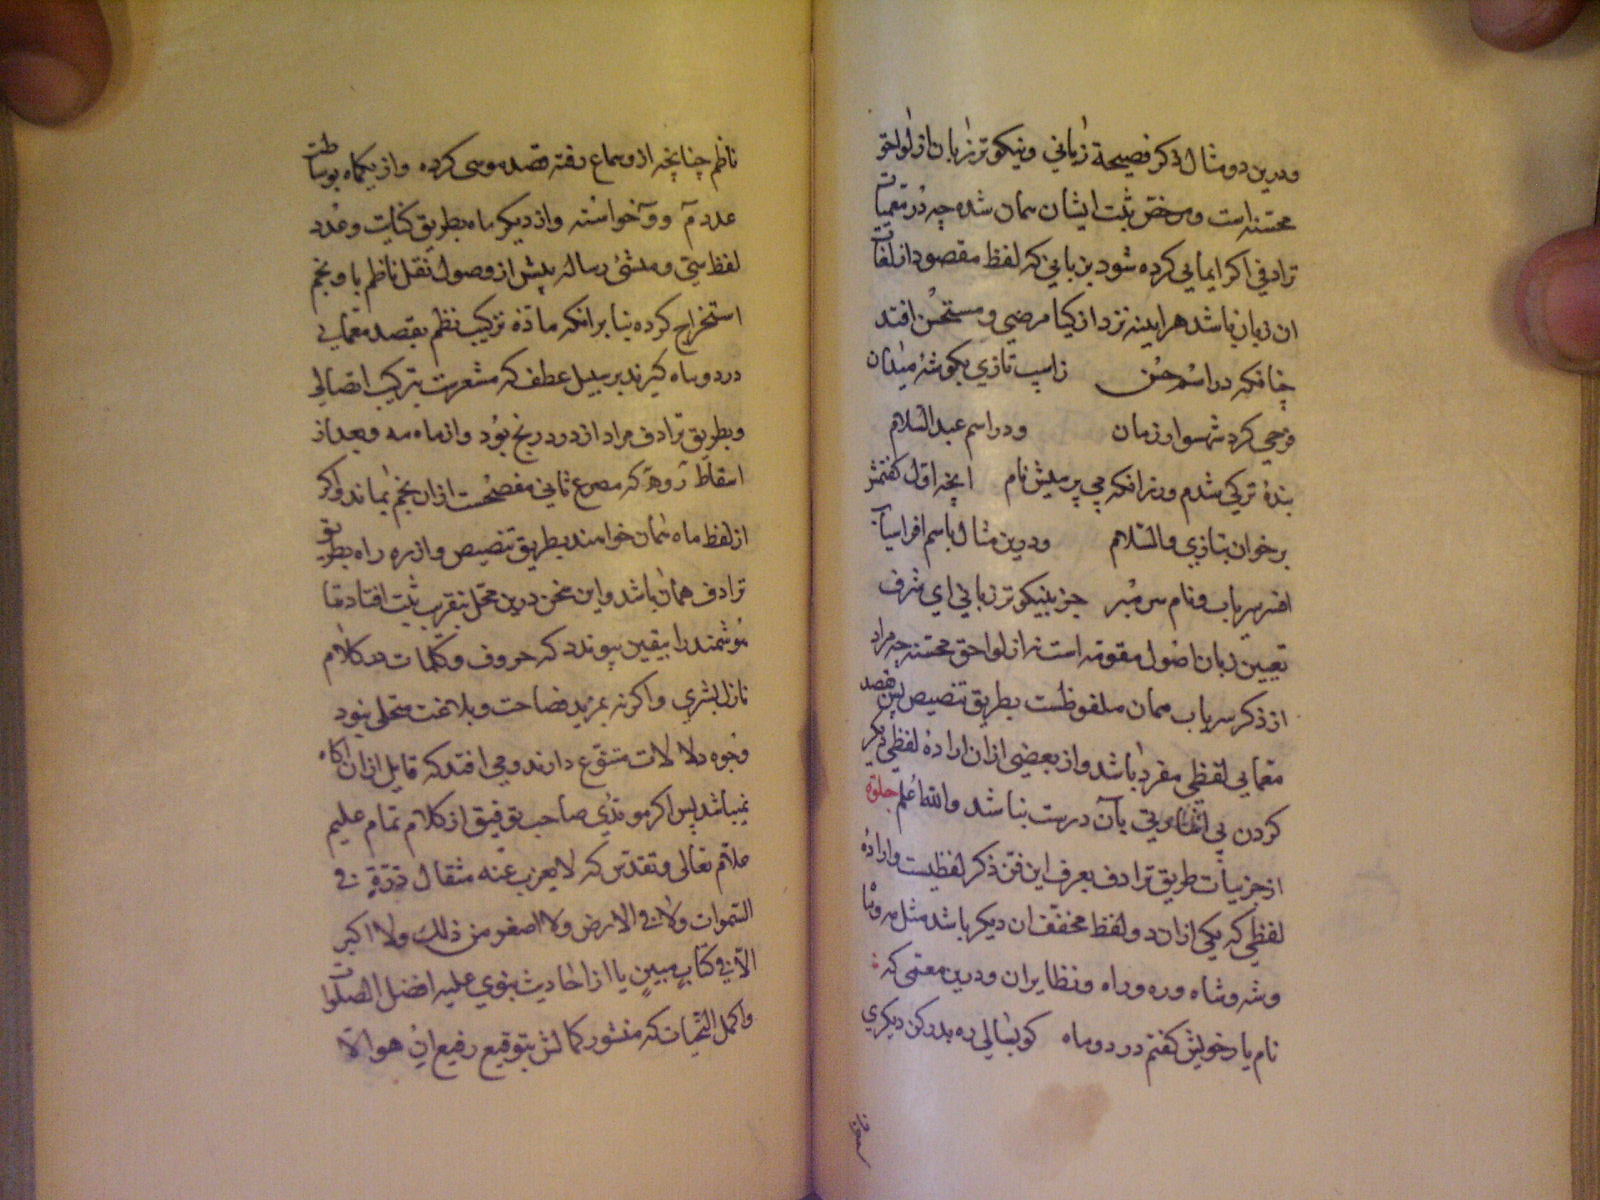 ودرین دو مثال ذکر فصیحة زبانی ونیکوتر زبان از لواحق
محسنه است و مرخص بثت ایشان سمان شده چه در تعمیات
ترادفی اگر ایمایی کرده شود بزبانی که لفظ مقصود از لغات
ان زبان باشد هر اینه نزد ازکیا مرضی و مستحسن افتد
چنانکه در اسم حسن زاسپ تازی بکوشهٔ میدان
وحی کرد شهسوار زمان ودر اسم عبد السّلام
بندهٔ ترکی شدم ورزانکه می پرسیش نام انچه اوّل کفتمش
برخوان بتازی والسّلام ودرین مثال باسم افراسیاب
افسر سریاب ونام سر مبر جز بنیکوتر زبانی ای شرف
تعیین زبان اصول مقومه است نه از لواحق محسنه چه مراد
از ذکر سریاب همان ملفوظست بطریق تنصیص پس قصد
معمایی لفظی مفرد باشد واز بعضی ازان ارادهٔ لفظی دیکر
کردن بی اشارتی بآن درست نباشد والله اعلم جلوه
از جزییات طریق ترادف بعرف این فنّ ذکر لفظیست وارادهٔ
لفظی که یکی ازان دو لفظ مخفّف ان دیکر باشد مثل مه وماه
وشه وشاه وره وراه ونظایران ودرین معمّی که
نام یار خویش کفتم در دو ماه کو بسالی ره بدر کن دیکری
ناظم چنانچه از و سماع رفته قصد موسی کرده واز یکماه بوساطت
عدد مآ و وآ خواسته واز دیکر ماه بطریق کنایت وعدد
لفظ سی ومنشئ رساله پیش از وصول نقل ناظم باو نجم
استخراج کرده بنا بر انکه مادّهٔ ترکیب نظم بقصد معمایی
درد وماه کیرند بر سبیل عطف که مشعرست بترکیب اتصالی
وبطریق ترادف مراد از درد رنج بود واز ماه مه وبعد از
اسقاط رَ وهَ که مصرع ثانی مفصحست ازان نجم بماند واکر
از لفظ ماه همان خواهند بطریق تنصیص واز ره راه بطریق
ترادف همان باشد واین سخن درین محل بتقریب ثبت افتاد تا
هوشمند را بیقین پیوندد که حروف وکلمات در کلام
نازل بشری واکرنه بمزید فصاحت وبلاغت متحلی بود
وجوه دلالات متنوّع دارند ومی افتد که قایل ازان آکاه
نمیباشد پس اکر موبدی صاحب توفیق از کلام تمام علیم
علّام تعالی وتقدّس که لا یعزب عنه مثقال ذرّةٍ فی
السّموات ولا فی الارض ولا اصغر من ذلک ولا اکبر
الّا فی کتابٍ مبینٍ یا از احادیث نبوی علیه افضل الصلوات
واکمل التحیّات که منشور کمالش بتوقیع رفیع ان هو الّا